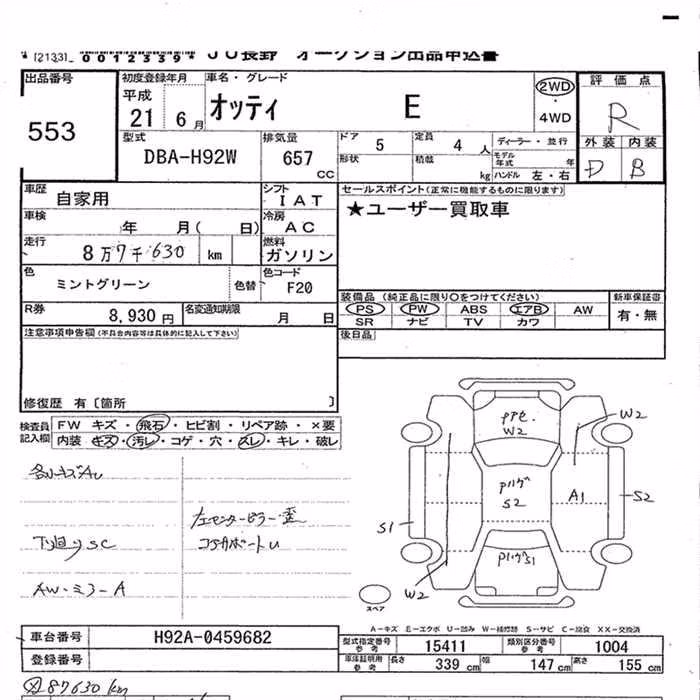 *[2133]_*0012339* JU長野 オークション出品申込書
出品番号 初度登録年月 車名・グレード 評価点
553 平成 21 6月 オッティ E 2WD ・ 4WD R
外装 内装
D B
型式 排気量 ドア 5 定員 4人 ディーラー・並行
DBA-H92W 657 CC 形状 積載 kg モデル年式 年
ハンドル 左・右
車歴 自家用 シフト IAT セールスポイント(正常に機能するものに限ります)
車検 年 月( 日) 冷房 AC ★ユーザー買取車
走行 8万7千630 km 燃料 ガソリン
色 ミントグリーン 色替 色コード F20
R券 8,930円 名変通知期限 月 日
装備品(純正品に限り○をつけてください) 新車保証書
PS PW ABS エアB AW 有・無
SR ナビ TV カワ
注意事項申告欄(不具合内容等は具体的に記入して下さい) 後日品
修復歴 有〔箇所 〕
検査員記入欄 FW キズ・飛石・ヒビ割・リペア跡・×要
内装 キズ・汚レ・コゲ・穴・スレ・キレ・破レ
各リキズAU
左センターピラー歪
下廻りSC コアサポートU
AW・ミラーA
W2
W2
S2
A1
S2
S1
S1
W2
スペア
A-キズ E-エクボ U-凹み W-補修跡 S-サビ C-腐食 XX-交換済
車台番号 H92A-0459682 型式指定番号 参考 15411 類別区分番号 参考 1004
登録番号 車庫証明用 参考 長さ 339 cm 幅 147 cm 高さ 155 cm
87630km